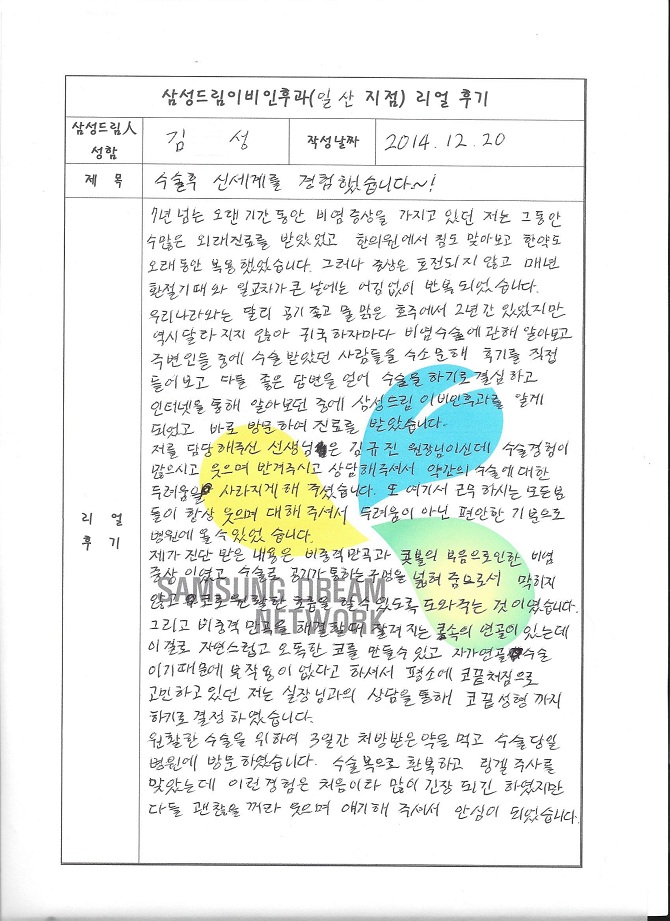 삼성드림이비인후과(일산 지점) 리얼 후기
삼성드림人
성함
김 성
작성날짜
2014. 12. 20
제 목
수술후 신세계를 경험했습니다~!
리 얼
후 기
7년 넘는 오랜 기간 동안 비염 증상을 가지고 있던 저는 그동안
수많은 외래진료를 받았었고 한의원에서 침도 맞아보고 한약도
오래동안 복용했었습니다. 그러나 증상은 호전되지 않고 매년
환절기때와 일교차가 큰 날에는 어김없이 반복되었습니다.
우리나라와는 달리 공기 좋고 물 맑은 호주에서 2년간 있었지만
역시 달라지지 않아 귀국하자마다 비염수술에 관해 알아보고
주변인들 중에 수술 받았던 사람들을 수소문해 후기를 직접
들어보고 다들 좋은 답변을 얻어 수술을 하기로 결심하고
인터넷을 통해 알아보던 중에 삼성드림 이비인후과를 알게
되었고 바로 방문하여 진료를 받았습니다.
저를 담당해주신 선생님은 김규진 원장님이신데 수술경험이
많으시고 웃으며 반겨주시고 상담해주셔서 약간의 수술에 대한
두려움을 사라지게 해 주셨습니다. 또 여기서 근무하시는 모든분
들이 항상 웃으며 대해 주셔서 두려움이 아닌 편안한 기분으로
병원에 올 수 있었습니다.
제가 진단 받은 내용은 비중격만곡과 콧볼의 부음으로인한 비염
증상이였고 수술로 공기가 통하는 구멍을 넓혀 줌으로서 막히지
않고 코로 원활한 호흡을 할 수 있도록 도와주는 것 이였습니다.
그리고 비중격 만곡을 해결할때 잘려지는 콧속의 연골이 있는데
이걸로 자연스럽고 오똑한 코를 만들수 있고 자가연골 수술
이기때문에 부작용이 없다고 하셔서 평소에 코끝처짐으로
고민하고 있던 저는 실장님과의 상담을 통해 코끝성형 까지
하기로 결정하였습니다.
원활한 수술을 위하여 3일간 처방받은 약을 먹고 수술당일
병원에 방문하였습니다. 수술복으로 환복하고 링겔 주사를
맞았는데 이런경험은 처음이라 많이 긴장 되긴 하였지만
다들 괜찮을 꺼라 웃으며 얘기해 주셔서 안심이 되었습니다.
SAMSUNG DREAM
NETWORK